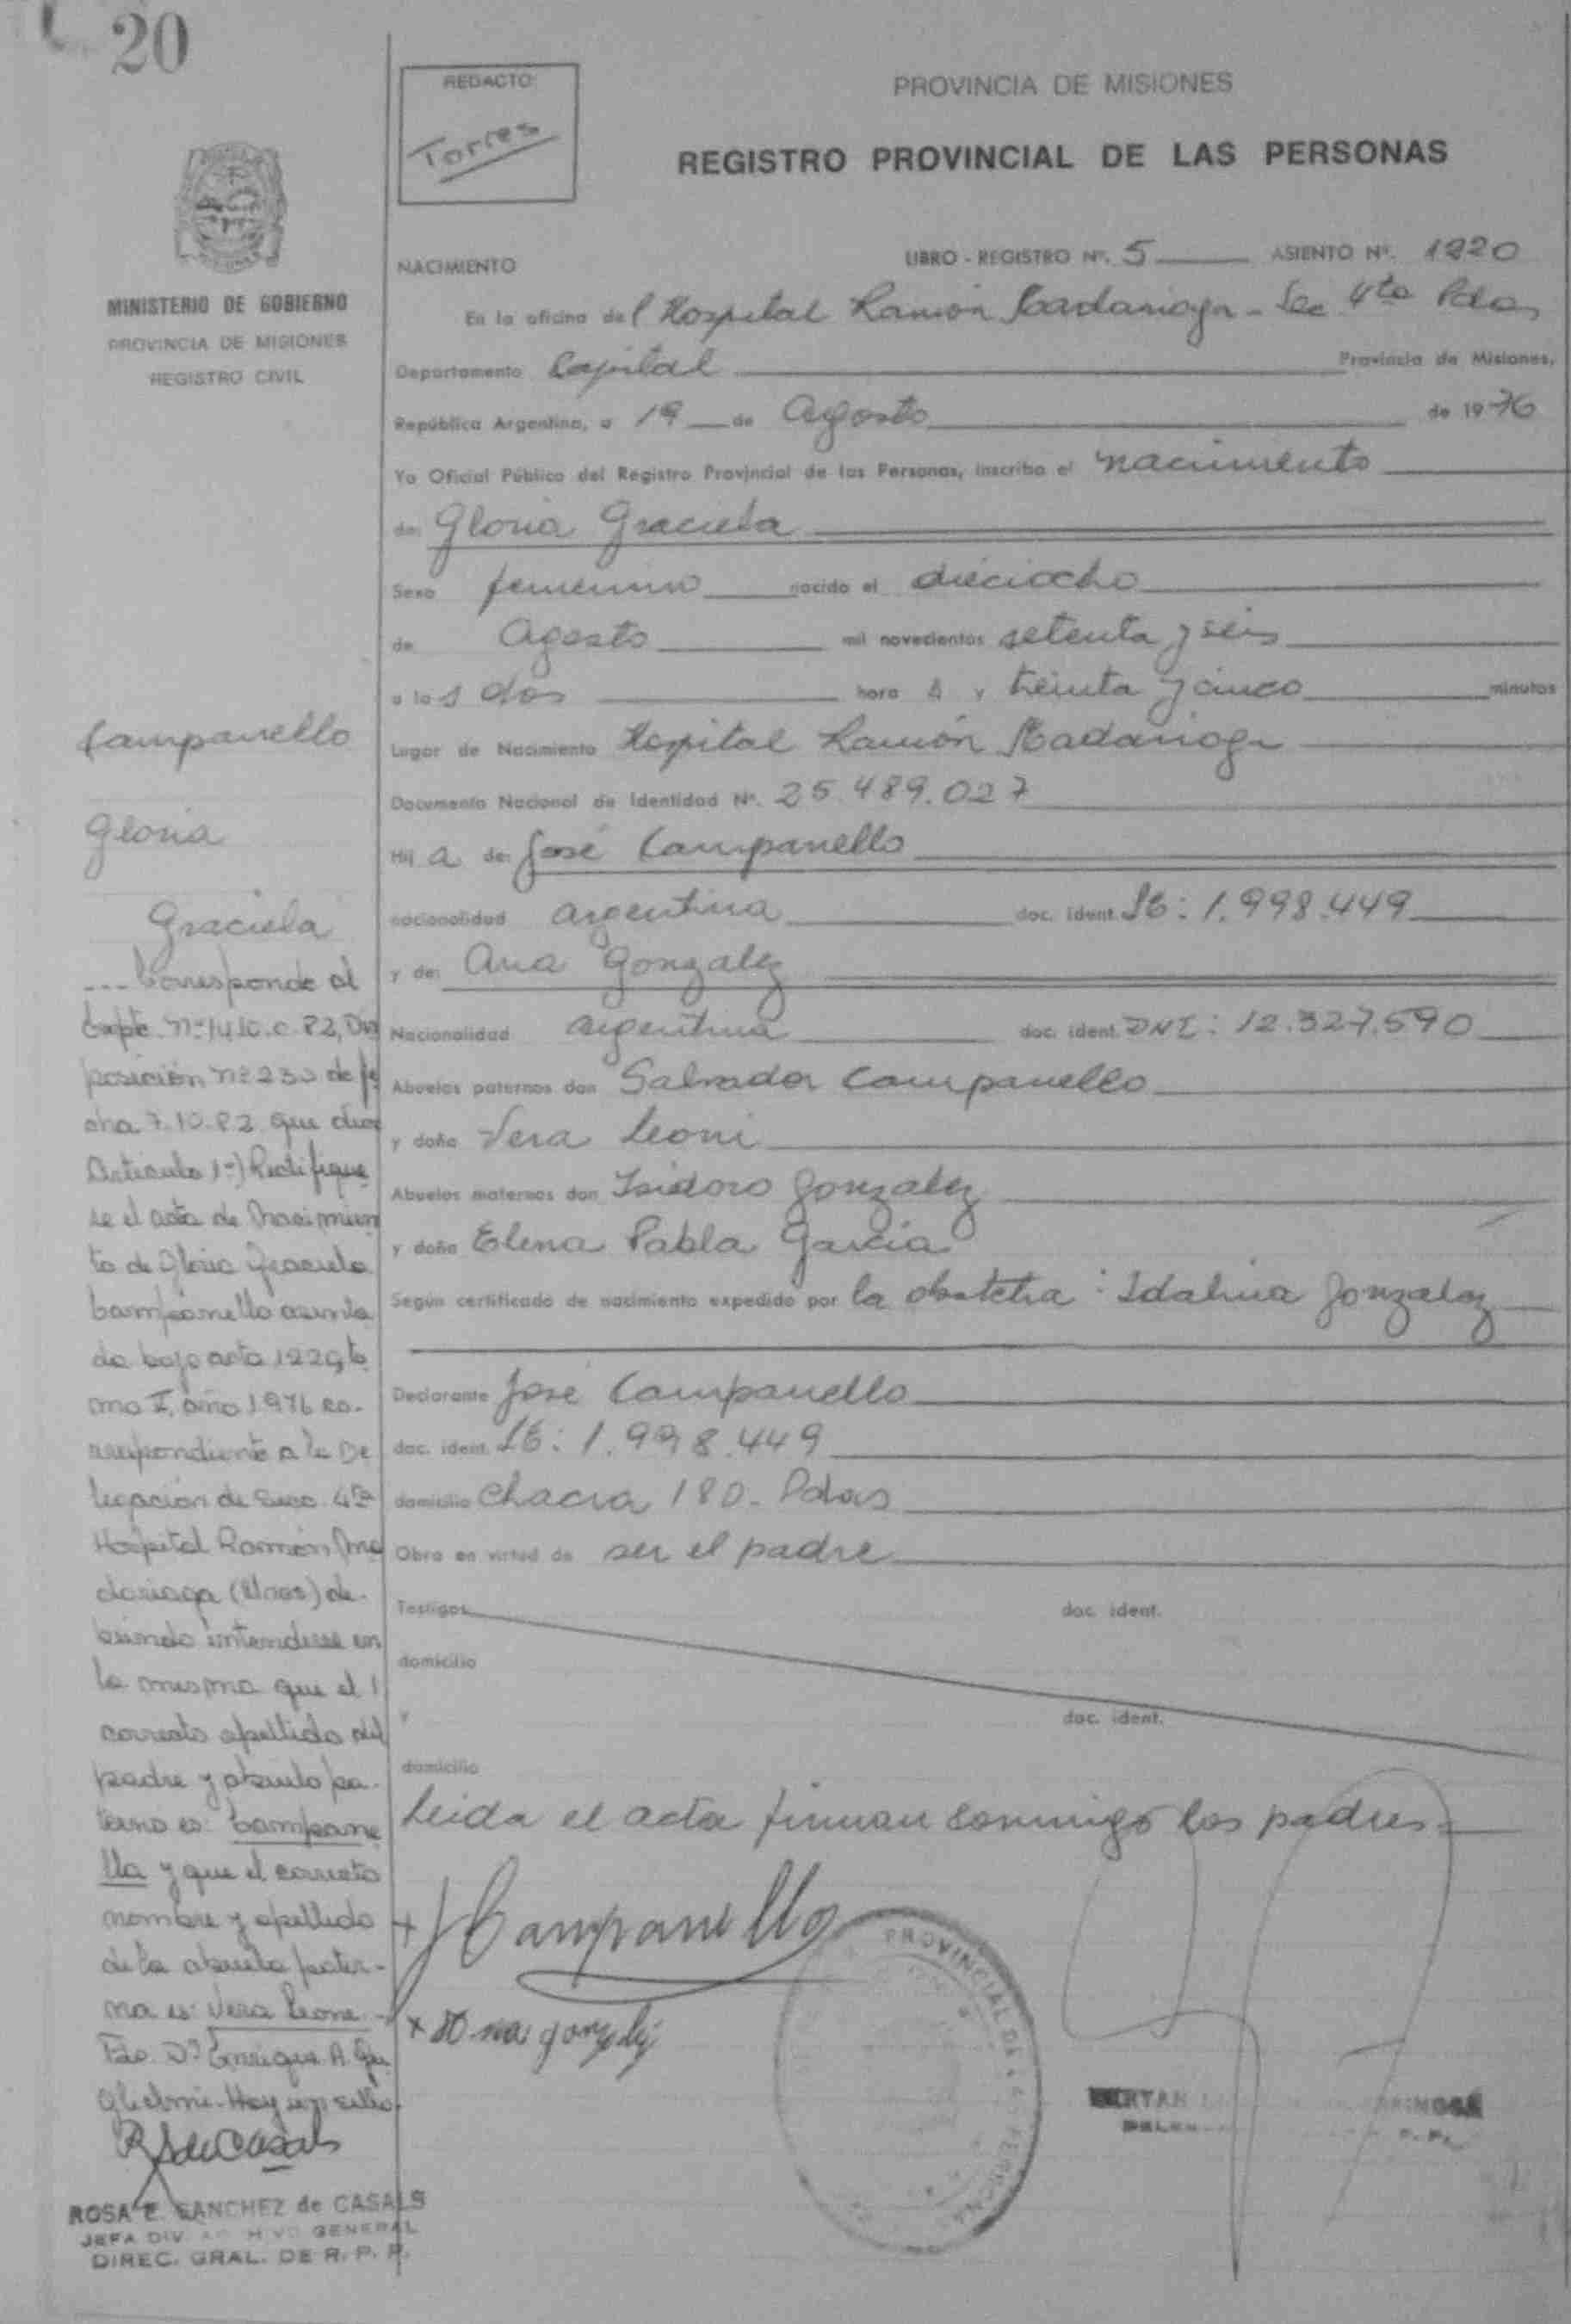 20
REDACTO:
Torres
PROVINCIA DE MISIONES
REGISTRO PROVINCIAL DE LAS PERSONAS
MINISTERIO DE GOBIERNO
PROVINCIA DE MISIONES
REGISTRO CIVIL
NACIMIENTO
LIBRO - REGISTRO Nº. 5 ASIENTO Nº. 1220
En la oficina del Hospital Ramón Madariaga - Sec 4ta Pdas
Departamento Capital Provincia de Misiones,
República Argentina, a 19 de Agosto de 1976
Yo Oficial Público del Registro Provincial de las Personas, inscribo el nacimiento
de: Gloria Graciela
Sexo femenino nacido el dieciocho
de Agosto mil novecientos setenta y seis
a las dos hora s y treinta y cinco minutos
Lugar de Nacimiento Hospital Ramón Madariaga
Documento Nacional de Identidad Nº. 25.489.027
Hij a de: José Campanello
nacionalidad argentina doc. ident. LE: 1.998.449
y de: Ana Gonzalez
Nacionalidad argentina doc. ident. DNI: 12.327.590
Abuelos paternos don Salvador Campanello
y doña Vera Leoni
Abuelos maternos don Isidoro Gonzalez
y doña Elena Pabla Garcia
Según certificado de nacimiento expedido por la obstetra: Idalina Gonzalez
Declarante José Campanello
doc. ident. LE: 1.998.449
domicilio Chacra 180. Pdas
Obra en virtud de ser el padre
Testigos doc. ident.
domicilio
y doc. ident.
domicilio
Leida el acta firman conmigo los padres
Campanello
Gloria
Graciela
... Corresponde al
Expte. Nº 1410.c.82, Dis
posición Nº 230 de fe
cha 7.10.82 que dice
Articulo 1º) Rectifique
se el acta de Nacimien
to de Gloria Graciela
Campanello asenta
da bajo acta 1220, to
mo I, año 1976 co-
rrespondiente a la De
legación de Secc. 4ta
Hospital Ramón Ma
dariaga (Mnes) de-
biendo entenderse en
la misma que el
correcto apellido del
padre y abuelo pa-
terno es: Campane
lla y que el correcto
nombre y apellido
de la abuela pater-
na es: Vera Leone
Fdo. Dr. Enrique A. Gu
glielmi. Hay un sello
ROSA E. SANCHEZ de CASALS
JEFA DIV. ARCHIVO GENERAL
DIREC. GRAL. DE R. P. P.
+ J Campanello
x Ana gonzalez
PROVINCIAL DE LAS PERSONAS